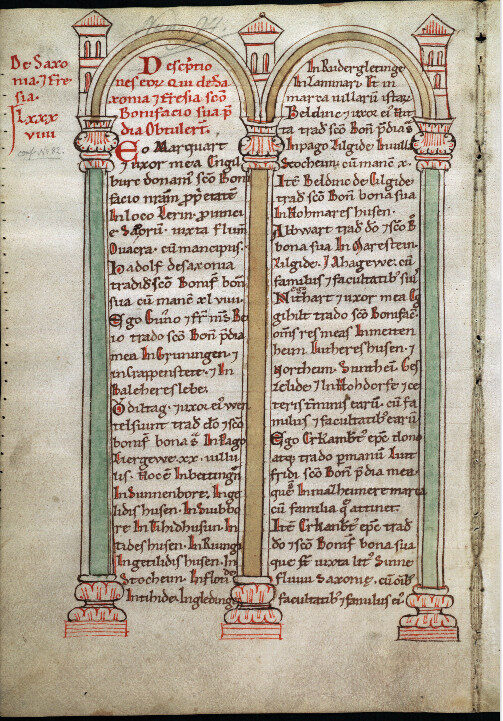 De Saxo
nia ⁊ Fre
sia.
LXXX
VIIII
Descriptio
nes eorum Qui de Sa
xonia ⁊ Fresia sco
Bonifacio sua p̄
dia Obtulerт̄.
Ego Marquart
⁊ uxor mea Engil
burc donam̄ sco Boni
facio nram̄ p̄p̄etatē
In loco Berin. p̄uinci
e Saxonū iuxta flum̄
Ouacra. cū mancipiis.
Hadolf de saxonia
tradid̄ sco Bonif̄ bon̄
sua cū manē xl viii.
Ego Guno ⁊ fr̄ m̄s Be
io trado sco Bon̄ p̄dia
mea In Gruningen ⁊
in Crappenstete ⁊ In
Baleherteslebe.
Odiltag ⁊ uxor ei᷒ Wen
telsuint trad̄ do ⁊ sco
bonif̄ bona s̄ In Pago
Hergewe. xx. uillu
lis. hoc ē In bettingen
In Sunnenbore. Inge
lidishusen. In Suibbo
re In Tihidhusun In
tideshusen. In Riungi
In getilidishusen. In
Stocheim In flon
In tihide. In gledinge
In Rudergletinge
In Laminari Et in
marca uillarū istarū
Beldinc ⁊ uxor ei᷒ Hit
ta trad̄ sco Bon̄ p̄dia s̄
In pago Ilgide. In uilla
Stocheim cū manē x.
Itē Beldinc de Eilgide
trad̄ sco Bon̄ bona sua
In Hohmareshusen.
Albwart trad̄ do ⁊ sco B̄
bona sua In Garestein.
Eilgide. ⁊ Ahagewe. cū
familiis ⁊ facultatib᷒ sui᷒
Ego
Nithart ⁊ uxor mea G
gihilt trado sco Bonifac̄
oms̄ res meas In metten
heim Luthereshusen. ⁊
Northeim. Sunthei Ges
zelide ⁊ In Hohdorf ⁊ ce
teris t̄minis earū. cū fa
miliis ⁊ facultatib᷒ earū
Ego Erkanb᷒t ep̄c dono
atq̄ trado p manū Lunt
fridi sco Bon̄ p̄dia mea
que In malheimere marca
cū familia q̄ attinet.
Itē Erkanb᷒t ep̄c trad̄
do ⁊ sco Bonif̄ bona sua
que s̄t iuxta lit᷒ Sunne
fluuii Saxonie. cū oīb᷒
facultatib᷒ ⁊ familiis ei᷒